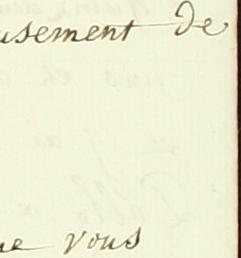 usement de
ue vous